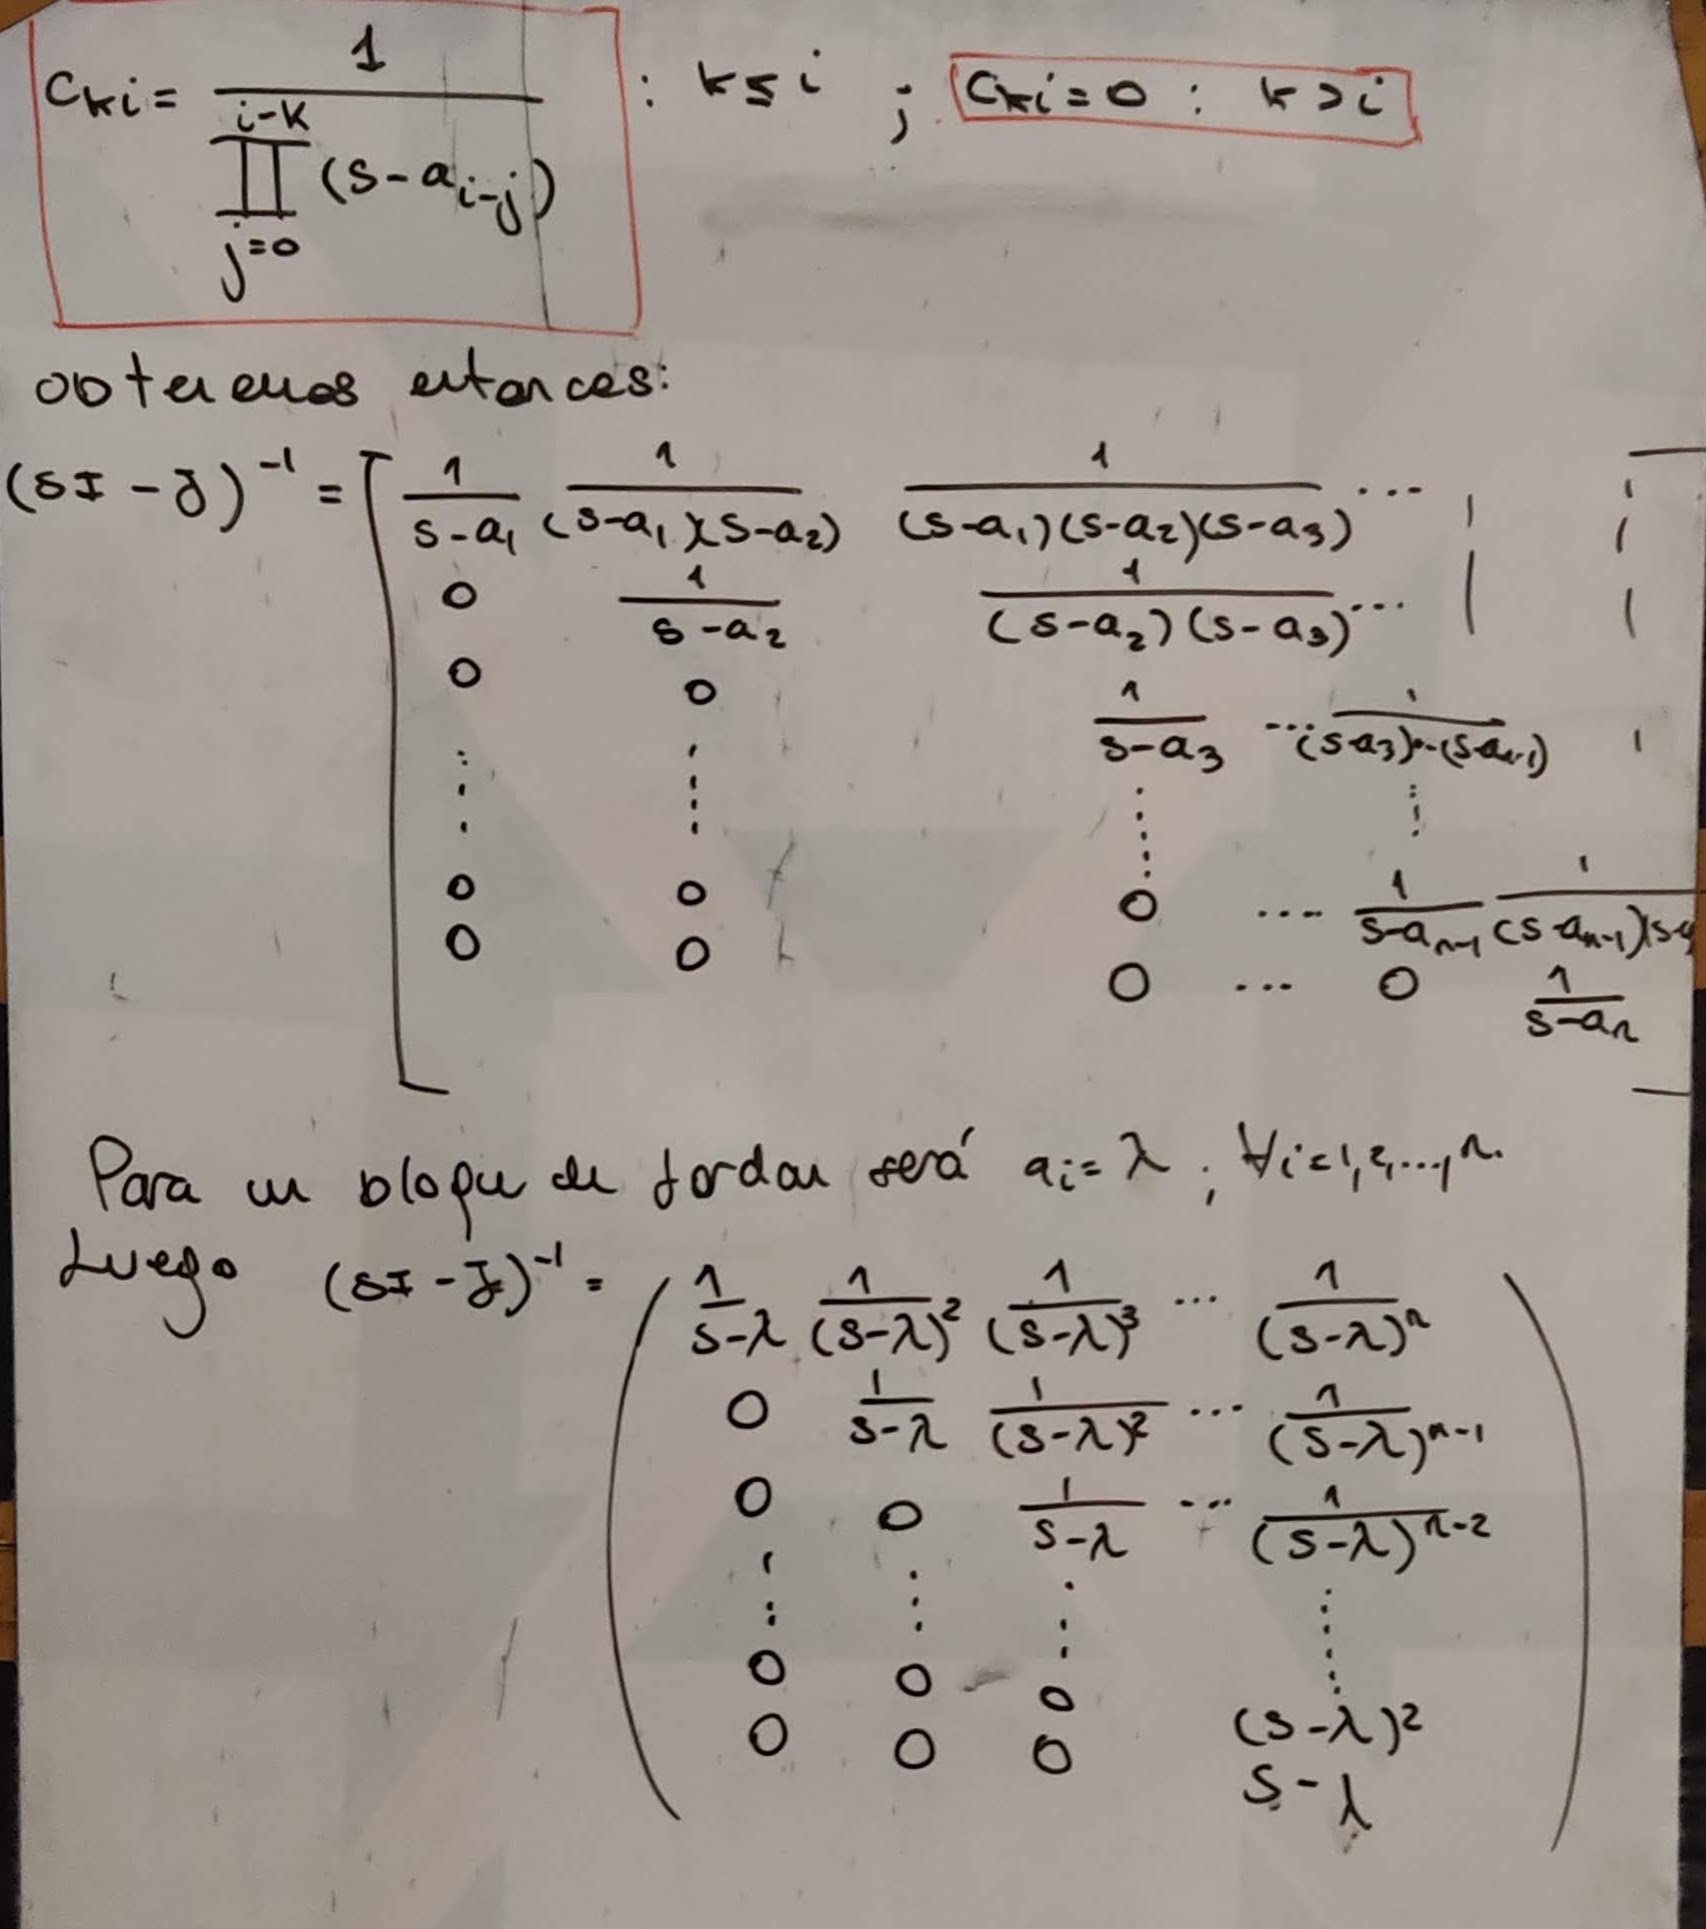 C_{ki} = \frac{1}{\prod_{j=0}^{i-k} (s-a_{i-j})} : k ≤ i ; C_{ki} = 0 : k > i
obtenemos entonces:
(sI - J)^{-1} = [ \frac{1}{s-a_1} \frac{1}{(s-a_1)(s-a_2)} \frac{1}{(s-a_1)(s-a_2)(s-a_3)} ...
0 \frac{1}{s-a_2} \frac{1}{(s-a_2)(s-a_3)} ...
0 0 \frac{1}{s-a_3} ... \frac{1}{(s-a_3)...(s-a_{n-1})}
0 0 0 .... \frac{1}{s-a_{n-1}} \frac{1}{(s-a_{n-1})(s-a
0 0 0 ... 0 \frac{1}{s-a_n} ]
Para un bloque de Jordan será a_i = λ ; ∀i = 1, 2, ..., n.
Luego (sI - J)^{-1} = ( \frac{1}{s-λ} \frac{1}{(s-λ)^2} \frac{1}{(s-λ)^3} ... \frac{1}{(s-λ)^n}
0 \frac{1}{s-λ} \frac{1}{(s-λ)^2} ... \frac{1}{(s-λ)^{n-1}}
0 0 \frac{1}{s-λ} ... \frac{1}{(s-λ)^{n-2}}
0 0 0 (s-λ)^2
0 0 0 s-λ )